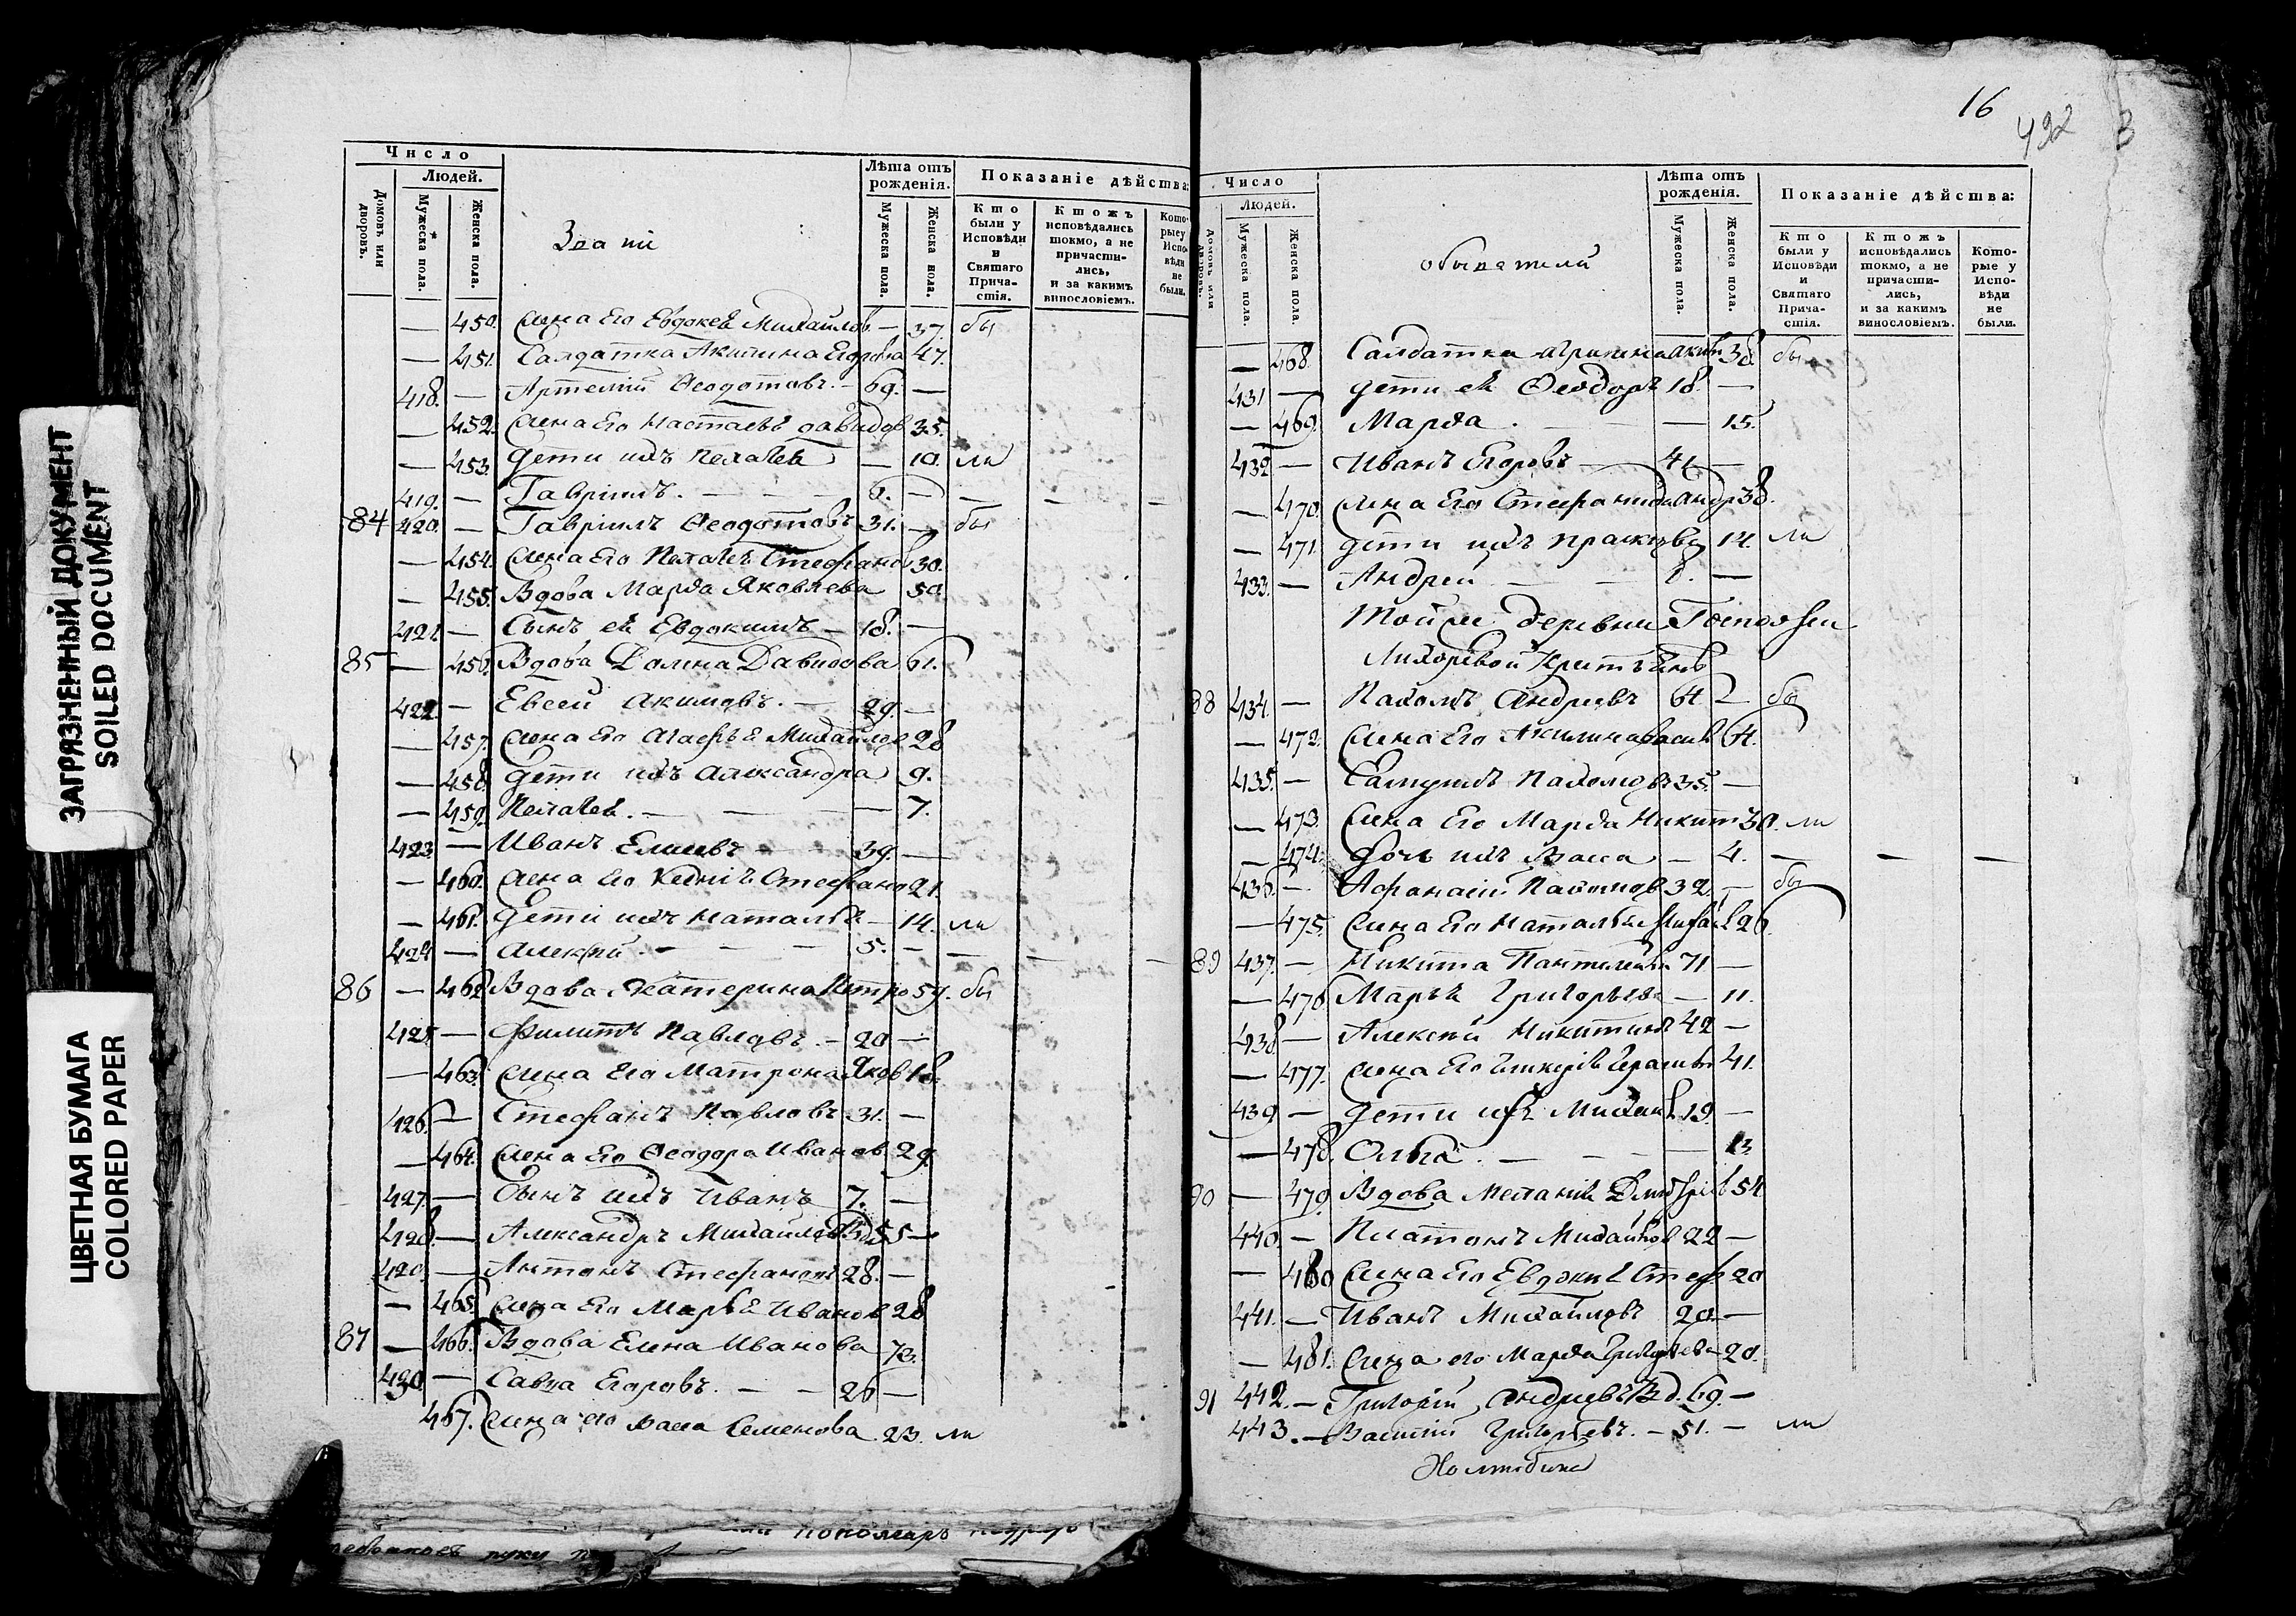 ЗАГРЯЗНЕННЫЙ ДОКУМЕНТ
SOILED DOCUMENT
ЦВЕТНАЯ БУМАГА
COLORED PAPER
Число
Людей.
Домовъ или дворовъ.
Мужеска пола.
Женска пола.
Лѣта отъ рожденія.
Мужеска пола.
Женска пола.
Показаніе дѣйства:
Кто были у Исповѣди и Святаго Причастія.
Ктожъ исповѣдались токмо, а не причастились, и за какимъ винословіемъ.
Которые у Исповѣди не были.
— 450. Жена Его Евдокея Михайлов. — 37. бы
— 451. Салдатка Акилина Егорова 47.
418. — Артемій Ѳеодотовъ. — 69. —
— 452. Жена Его Настасья давидов 35.
— 453. Дети ихъ Пелагея — 10. ли
419. — Гавріилъ. — — — 6. — — — —
84 420. — Гавріилъ Ѳеодотовъ 31. — бы
— 454. Жена Его Пелагея Стефанов 30.
— 455. Вдова Марѳа Яковлева 50.
421. — Сынъ ея Евдокимъ — 18. —
85 — 456. Вдова Домна Давидова 61.
422. — Евсей Акимовъ. — 29. —
— 457. Жена Его Агафья Михайлов 28
— 458. Дети ихъ Александра 9.
— 459. Пелагея. — — — 7.
423. — Иванъ 39. —
— 460. Жена Его Ксенія Стефано 21.
— 461. Дети ихъ Наталья — 14. ли
424. — Алексей. — — — 5. — — — —
86 — 462. Вдова Екатерина Петро 57. бы
425. — Филиппъ Павловъ. — 20 —
— 463. Жена Его Матрона Яков 18.
426. — Стефанъ Павловъ 31. —
— 464. Жена Его Ѳеодора Иванов 29.
427. — Сынъ ихъ Иванъ 7. —
428. — Александръ Михайлов Вд 55 —
429. — Антонъ Стефановъ 28. —
— 465. Жена Его Марья Иванов 28
87 — 466. Вдова Елена Иванова 73.
430. — Савва Егоровъ. — — 26 —
467. Жена его Васса Семенова 23. ли
16
492
Число
Людей.
Домовъ или дворовъ.
Мужеска пола.
Женска пола.
обыватели
Лѣта отъ рожденія.
Мужеска пола.
Женска пола.
Показаніе дѣйства:
Кто были у Исповѣди и Святаго Причастія.
Ктожъ исповѣдались токмо, а не причастились, и за какимъ винословіемъ.
Которые у Исповѣди не были.
— 468. Салдатка 38. бы
431 — дети ея Ѳеодоръ 18. —
— 469. Марѳа. — — 15.
432 — Иванъ Егоровъ — 41 —
— 470. Жена Его Стефанида Андр 38.
— 471. дети ихъ Прасковья 14. ли
433. — Андрей — — 8. —
Тойже деревни Госпожи
88 434. — Пахомъ Андреевъ 64. — бы
— 472. Жена Его Акилина Васил 64.
435. — Самуилъ Пахомовъ 35. —
— 473. Жена Его Марѳа Никит 30. ли
— 474. Дочь ихъ Васса — 4. — — —
436. — Афанасій Пахомов 32. — бы
— 475. Жена Его Наталья 26.
89 437. — Никита 71 —
— 476. Марья Григорьева — 11.
438. — Алексей Никитинъ 42 —
— 477. Жена Его 41.
439. — Дети ихъ Михаил 19 —
— 478. Ольга. — — — 13
90 — 479. Вдова Меланія 54
440. — Платонъ Михайлов 22 —
— 480 Жена Его Евдокия Стеф 20
441. — Иванъ Михайловъ 20. —
— 481. Жена его Марѳа Григорьева 20.
91 442. — Григорій Андреевъ Вд. 69. —
443. — Василій Григорьевъ. — 51. — ли